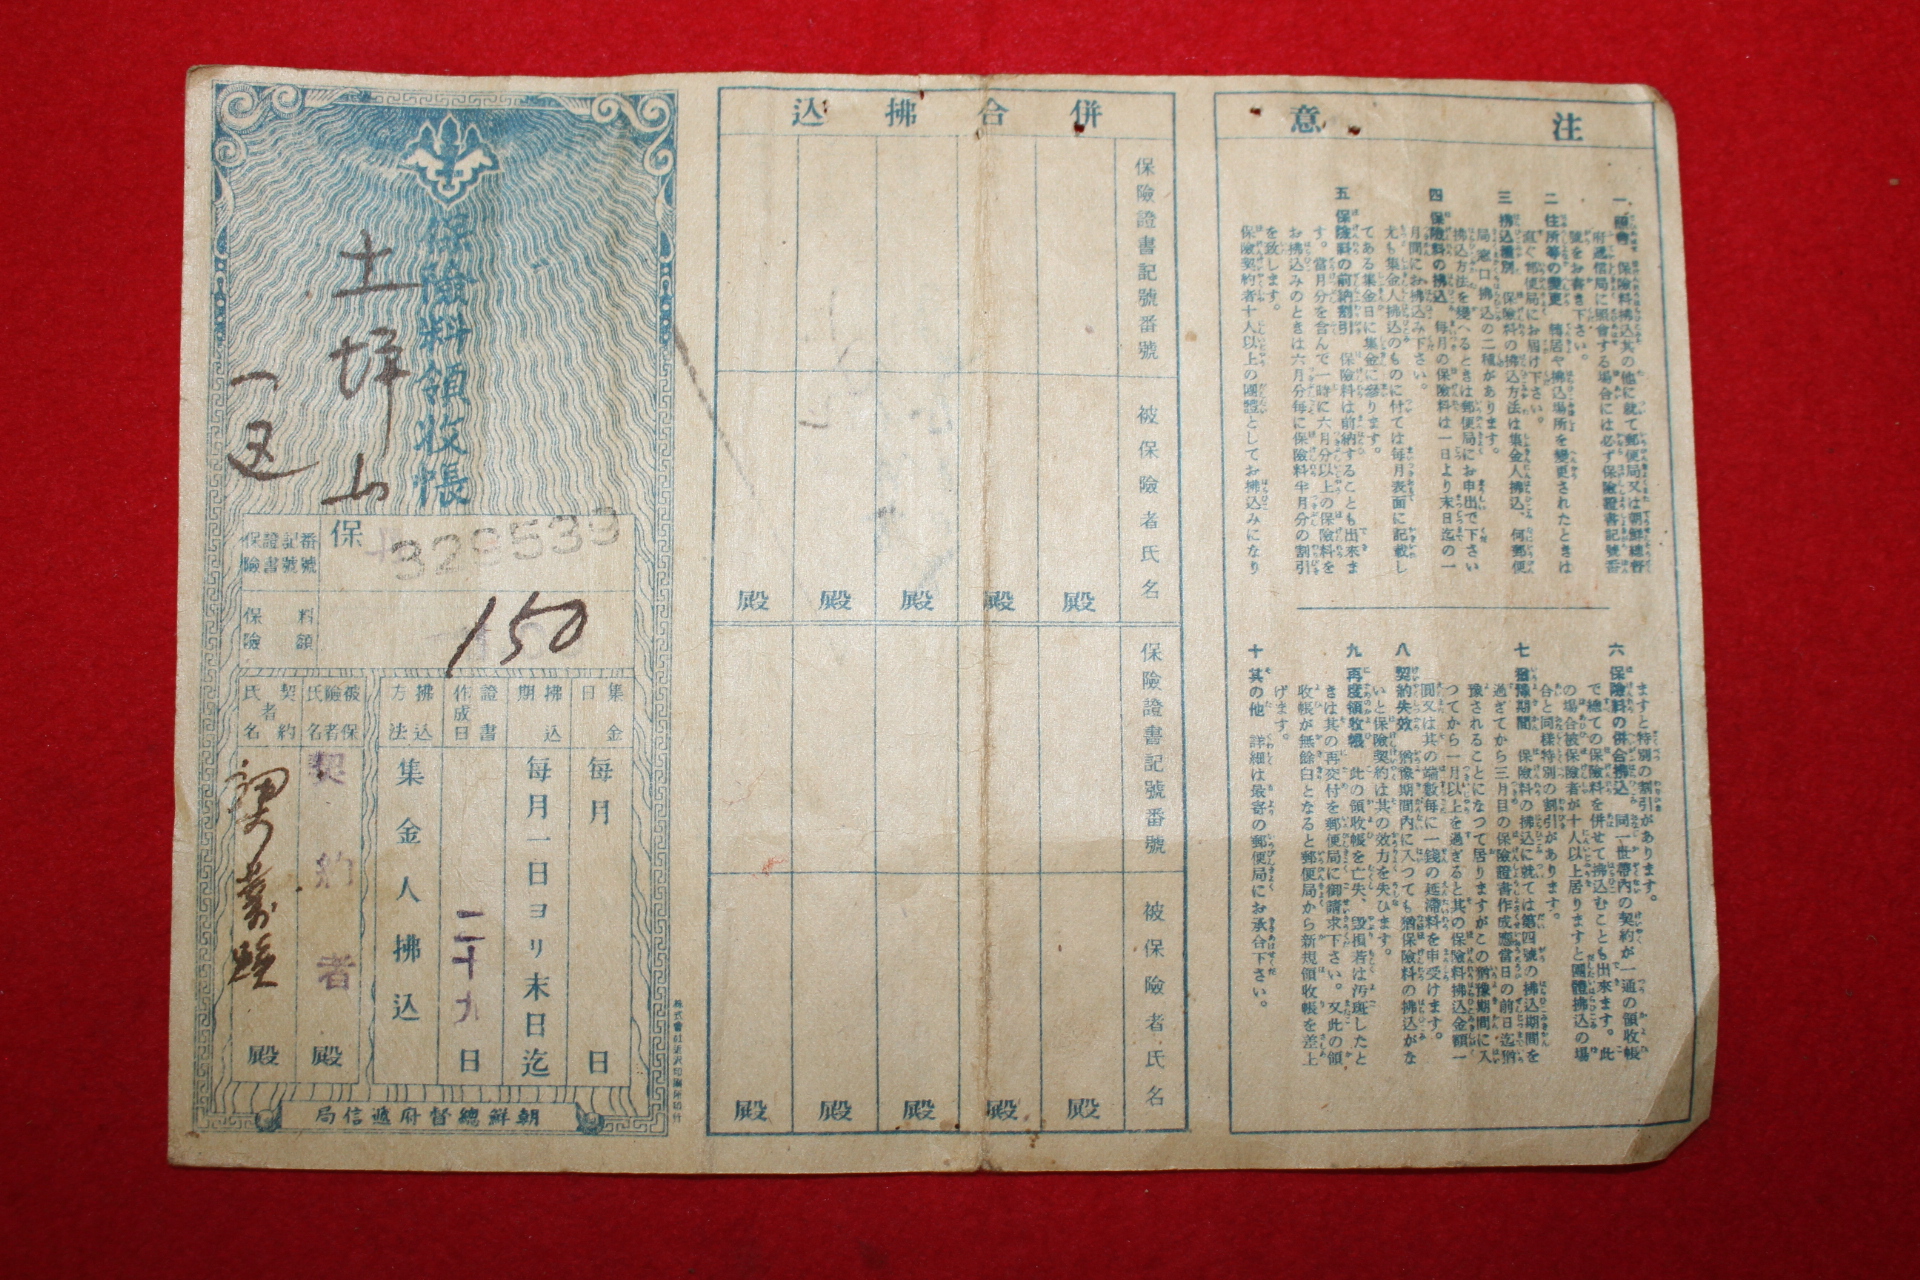 保險料領收帳
土坪山
一区
保險證書記號番號
保
329539
保險料額
150
集金日
毎月
日
拂込期
毎月一日ヨリ末日迄
證書作成日
二十九日
拂込方法
集金人拂込
被保險者氏名
契約者
殿
契約者氏名
殿
朝鮮總督府遞信局
併合拂込
保險證書記號番號
被保險者氏名
殿
殿
殿
殿
殿
保險證書記號番號
被保險者氏名
殿
殿
殿
殿
殿
注意
一、照會 保險料拂込其の他に就て郵便局又は朝鮮總督
府遞信局に照會する場合には必ず保險證書記號番
號をお書き下さい。
二 住所等の變更 轉居や拂込場所を變更されたときは
直ぐ郵便局にお届け下さい。
三 拂込種別 保險料の拂込方法は集金人拂込、何郵便
局窓口拂込の二種があります。
拂込方法を變へるときは郵便局にお申出で下さい
四 保險料の拂込 毎月の保險料は一日より末日迄の一
月間にお拂込み下さい。
尤も集金人拂込のものに付ては毎月表面に記載し
てある集金日に集金に參ります。
五 保險料の前納割引 保險料は前納することも出來ま
す。當月分を含んで一時に六月分以上の保險料を
お拂込みのときは六月分毎に保險料半月分の割引
を致します。
保險契約者十人以上の團體としてお拂込みになり
ますと特別の割引があります。
六 保險料の併合拂込 同一世帶內の契約が一通の領收帳
で總ての保險料を併せて拂込むことも出來ます。此
の場合被保險者が十人以上居りますと團體拂込の場
合と同樣特別の割引があります。
七 猶豫期間 保險料の拂込に就ては第四號の拂込期間を
過ぎてから三月目の保險證書作成應當日の前日迄猶
豫されることになつて居りますがこの猶豫期間に入
つてから一月以上を過ぎると其の保險料拂込金額一
圓又は其の端數毎に一錢の延滯料を申受けます。
八 契約失效 猶豫期間內に入つても猶保險料の拂込がな
いと保險契約は其の效力を失ひます。
九 再度領收帳 此の領收帳を亡失、毀損若は汚斑したと
きは其の再交付を郵便局に御請求下さい。又此の領
收帳が無餘白となると郵便局から新規領收帳を差上
げます。
十 其の他 詳細は最寄の郵便局にお承合下さい。